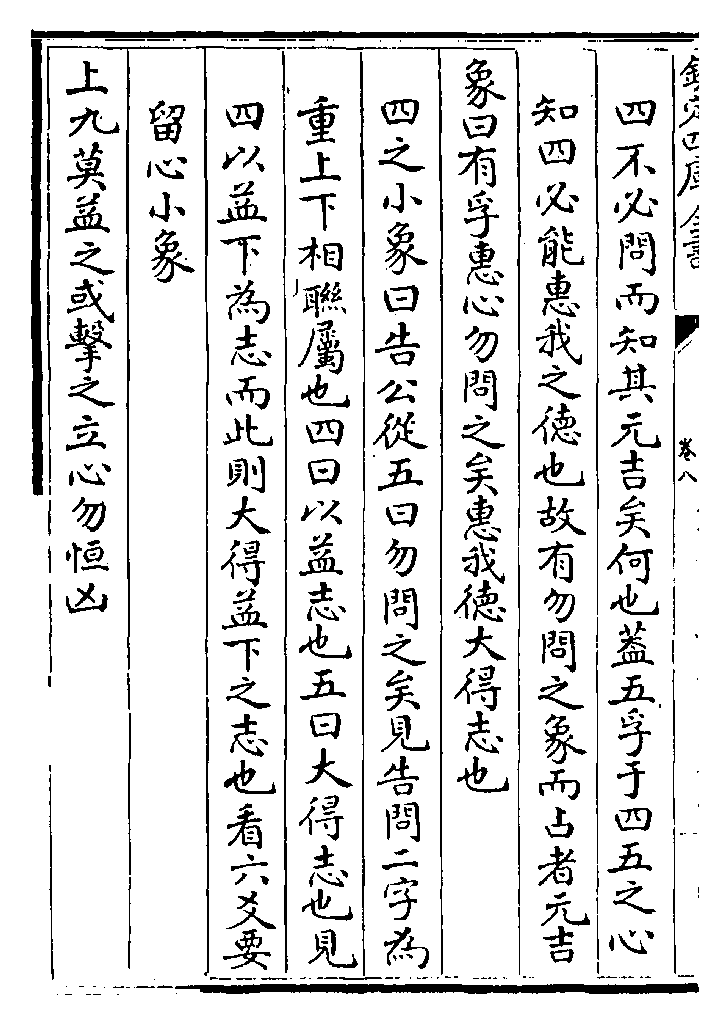 欽定四庫全書
卷八
四不必問而知其元吉矣何也蓋五孚于四五之心
知四必能惠我之德也故有勿問之象而占者元吉
象曰有孚惠心勿問之矣惠我德大得志也
四之小象曰告公從五曰勿問之矣見告問二字為
重上下相聯屬也四曰以益志也五曰大得志也見
四以益下為志而此則大得益下之志也看六爻要
留心小象
上九莫益之或擊之立心勿恒凶